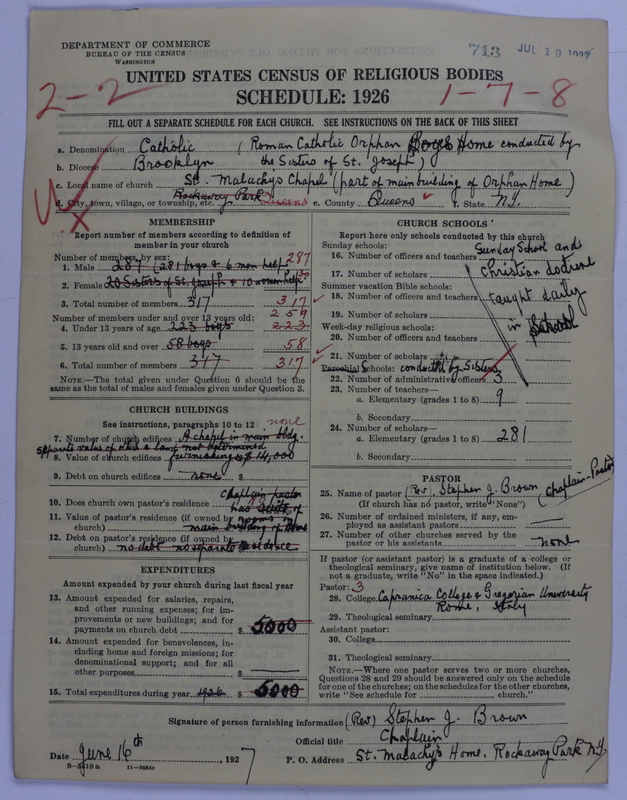 DEPARTMENT OF COMMERCE
BUREAU OF THE CENSUS
WASHINGTON
713 JUL 19
UNITED STATES CENSUS OF RELIGIOUS BODIES
SCHEDULE: 1926
2-2
1-7-8
FILL OUT A SEPARATE SCHEDULE FOR EACH CHURCH. SEE INSTRUCTIONS ON THE BACK OF THIS SHEET
a. Denomination Catholic (Roman Catholic Orphan Boys Home conducted by
b. Diocese Brooklyn the Sisters of St. Joseph)
c. Local name of church St. Malachy's Chapel (part of main building of Orphan Home)
d. City, town, village, or township, etc. Rockaway Park Queens e. County Queens f. State N.Y.
MEMBERSHIP
Report number of members according to definition of
member in your church
Number of members, by sex:
1. Male 287 (281 boys & 6 men help 287
2. Female 20 Sisters of St. Joseph & 10 women help 30
3. Total number of members 317 317
Number of members under and over 13 years old: 259
4. Under 13 years of age 223 boys 223
5. 13 years old and over 58 boys 58
6. Total number of members 317 317
NOTE.—The total given under Question 6 should be the
same as the total of males and females given under Question 3.
CHURCH BUILDINGS
See instructions, paragraphs 10 to 12 none
7. Number of church edifices A chapel in main bldg.
separate value of which & land not determined
8. Value of church edifices furnishings $ 14,000
9. Debt on church edifices none $
10. Does church own pastor's residence chaplain-pastor
has suite of
11. Value of pastor's residence (if owned by rooms in
church) main building of Home
12. Debt on pastor's residence (if owned by
church) no debt no separate residence
EXPENDITURES
Amount expended by your church during last fiscal year
13. Amount expended for salaries, repairs,
and other running expenses; for im-
provements or new buildings; and for
payments on church debt $ 5000
14. Amount expended for benevolences, in-
cluding home and foreign missions; for
denominational support; and for all
other purposes $
15. Total expenditures during year 1926 $ 5000
CHURCH SCHOOLS
Report here only schools conducted by this church
Sunday schools:
16. Number of officers and teachers Sunday School and
17. Number of scholars Christian doctrine
Summer vacation Bible schools:
18. Number of officers and teachers taught daily
19. Number of scholars in School
Week-day religious schools:
20. Number of officers and teachers
21. Number of scholars
Parochial Schools: conducted by Sisters
22. Number of administrative officers 3
23. Number of teachers—
a. Elementary (grades 1 to 8) 9
b. Secondary
24. Number of scholars—
a. Elementary (grades 1 to 8) 281
b. Secondary
PASTOR
25. Name of pastor (Rev) Stephen J. Brown (Chaplain-Pastor
(If church has no pastor, write "None")
26. Number of ordained ministers, if any, em-
ployed as assistant pastors
27. Number of other churches served by the
pastor or his assistants none
If pastor (or assistant pastor) is a graduate of a college or
theological seminary, give name of institution below. (If
not a graduate, write "No" in the space indicated.)
Pastor: 3
28. College Capranica College & Gregorian University
Rome, Italy
29. Theological seminary
Assistant pastor:
30. College
31. Theological seminary
NOTE.—Where one pastor serves two or more churches,
Questions 28 and 29 should be answered only on the schedule
for one of the churches; on the schedules for the other churches,
write "See schedule for church."
Signature of person furnishing information (Rev) Stephen J. Brown
Official title Chaplain
Date June 16th, 1927 P. O. Address St. Malachy's Home, Rockaway Park N.Y.
11-9684a